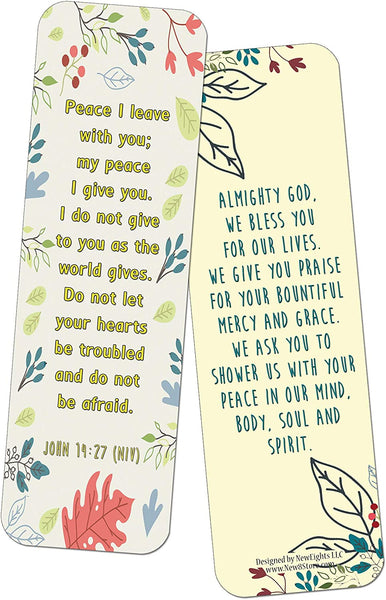 Peace I leave
with you;
my peace
I give you.
I do not give
to you as the
world gives.
Do not let
your hearts
be troubled
and do not
be afraid.
JOHN 14:27 (NIV)
ALMIGHTY GOD,
WE BLESS YOU
FOR OUR LIVES.
WE GIVE YOU PRAISE
FOR YOUR BOUNTIFUL
MERCY AND GRACE.
WE ASK YOU TO
SHOWER US WITH YOUR
PEACE IN OUR MIND,
BODY, SOUL AND
SPIRIT.
Designed by NewEights LLC
www.New8Store.com